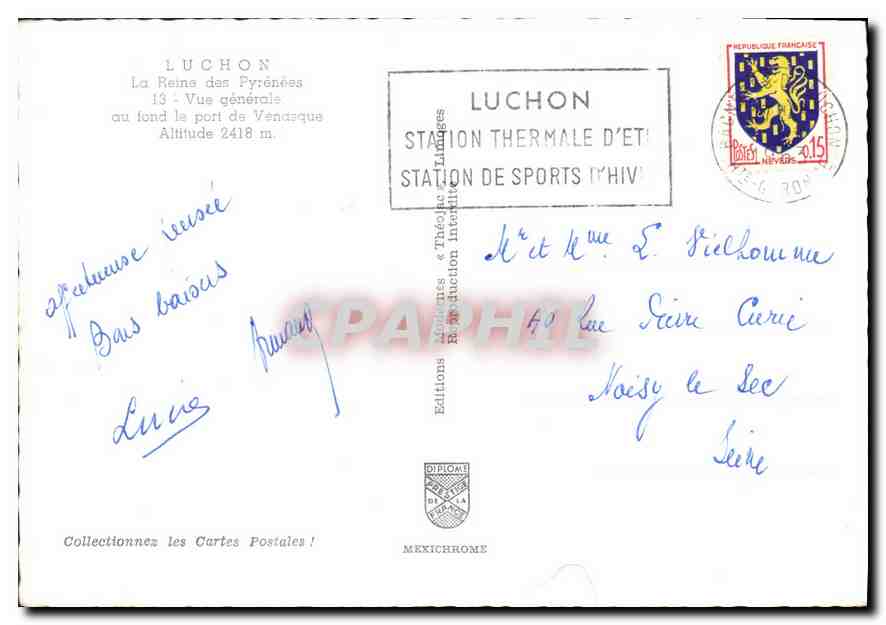 LUCHON
La Reine des Pyrénées
13 - Vue générale
au fond le port de Vénasque
Altitude 2418 m.
LUCHON
STATION THERMALE D'ETE
STATION DE SPORTS D'HIV
REPUBLIQUE FRANÇAISE
POSTES
0,15
NEVERS
affectueuse pensée
Bons baisers
Lucie
Armand
Editions Modernes « Théojac » Limoges
Reproduction interdite
Mr et Mme L. Vielhomme
40 Rue Pierre Curie
Noisy le Sec
Seine
CPAPHIL
DIPLOME
PRESTIGE
DE LA
FRANCE
MEXICHROME
Collectionnez les Cartes Postales !